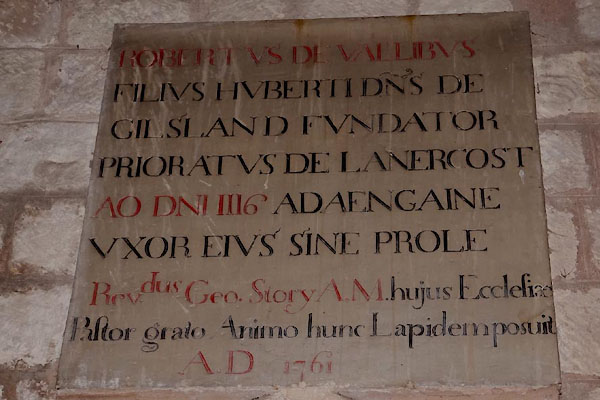 ROBERTVS DE VALLIBVS
FILIVS HVBERTI DÑS DE
GILSLAND FVNDATOR
PRIORATVS DE LANERCOST
AO DNI 1116 ADAENGAINE
VXOR EIVS SINE PROLE
Rev.dus Geo. Story A.M. hujus Ecclesiae
Pastor grato Animo hunc Lapidem posuit
A.D 1761